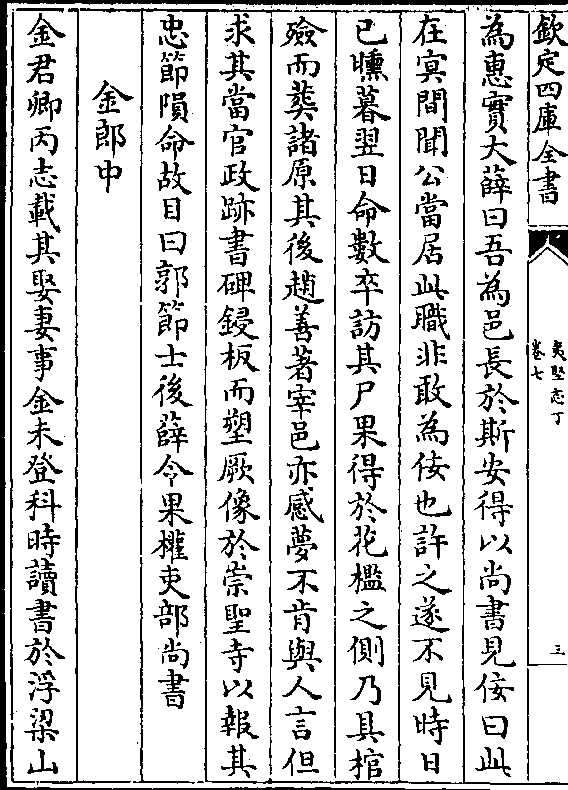 欽定四庫全書
夷堅志丁
卷七
三
為惠實大薛曰吾為邑長於斯安得以尚書見佞曰此
在冥間聞公當居此職非敢為佞也許之遂不見時日
已曛暮翌日命數卒訪其尸果得於花檻之側乃具棺
殮而葬諸原其後趙善著宰邑亦感夢不肯與人言但
求其當官政跡書碑鋟板而塑厥像於崇聖寺以報其
忠節隕命故目曰郭節士後薛令果權吏部尚書
金郎中
金君卿丙志載其娶妻事金未登科時讀書於浮梁山